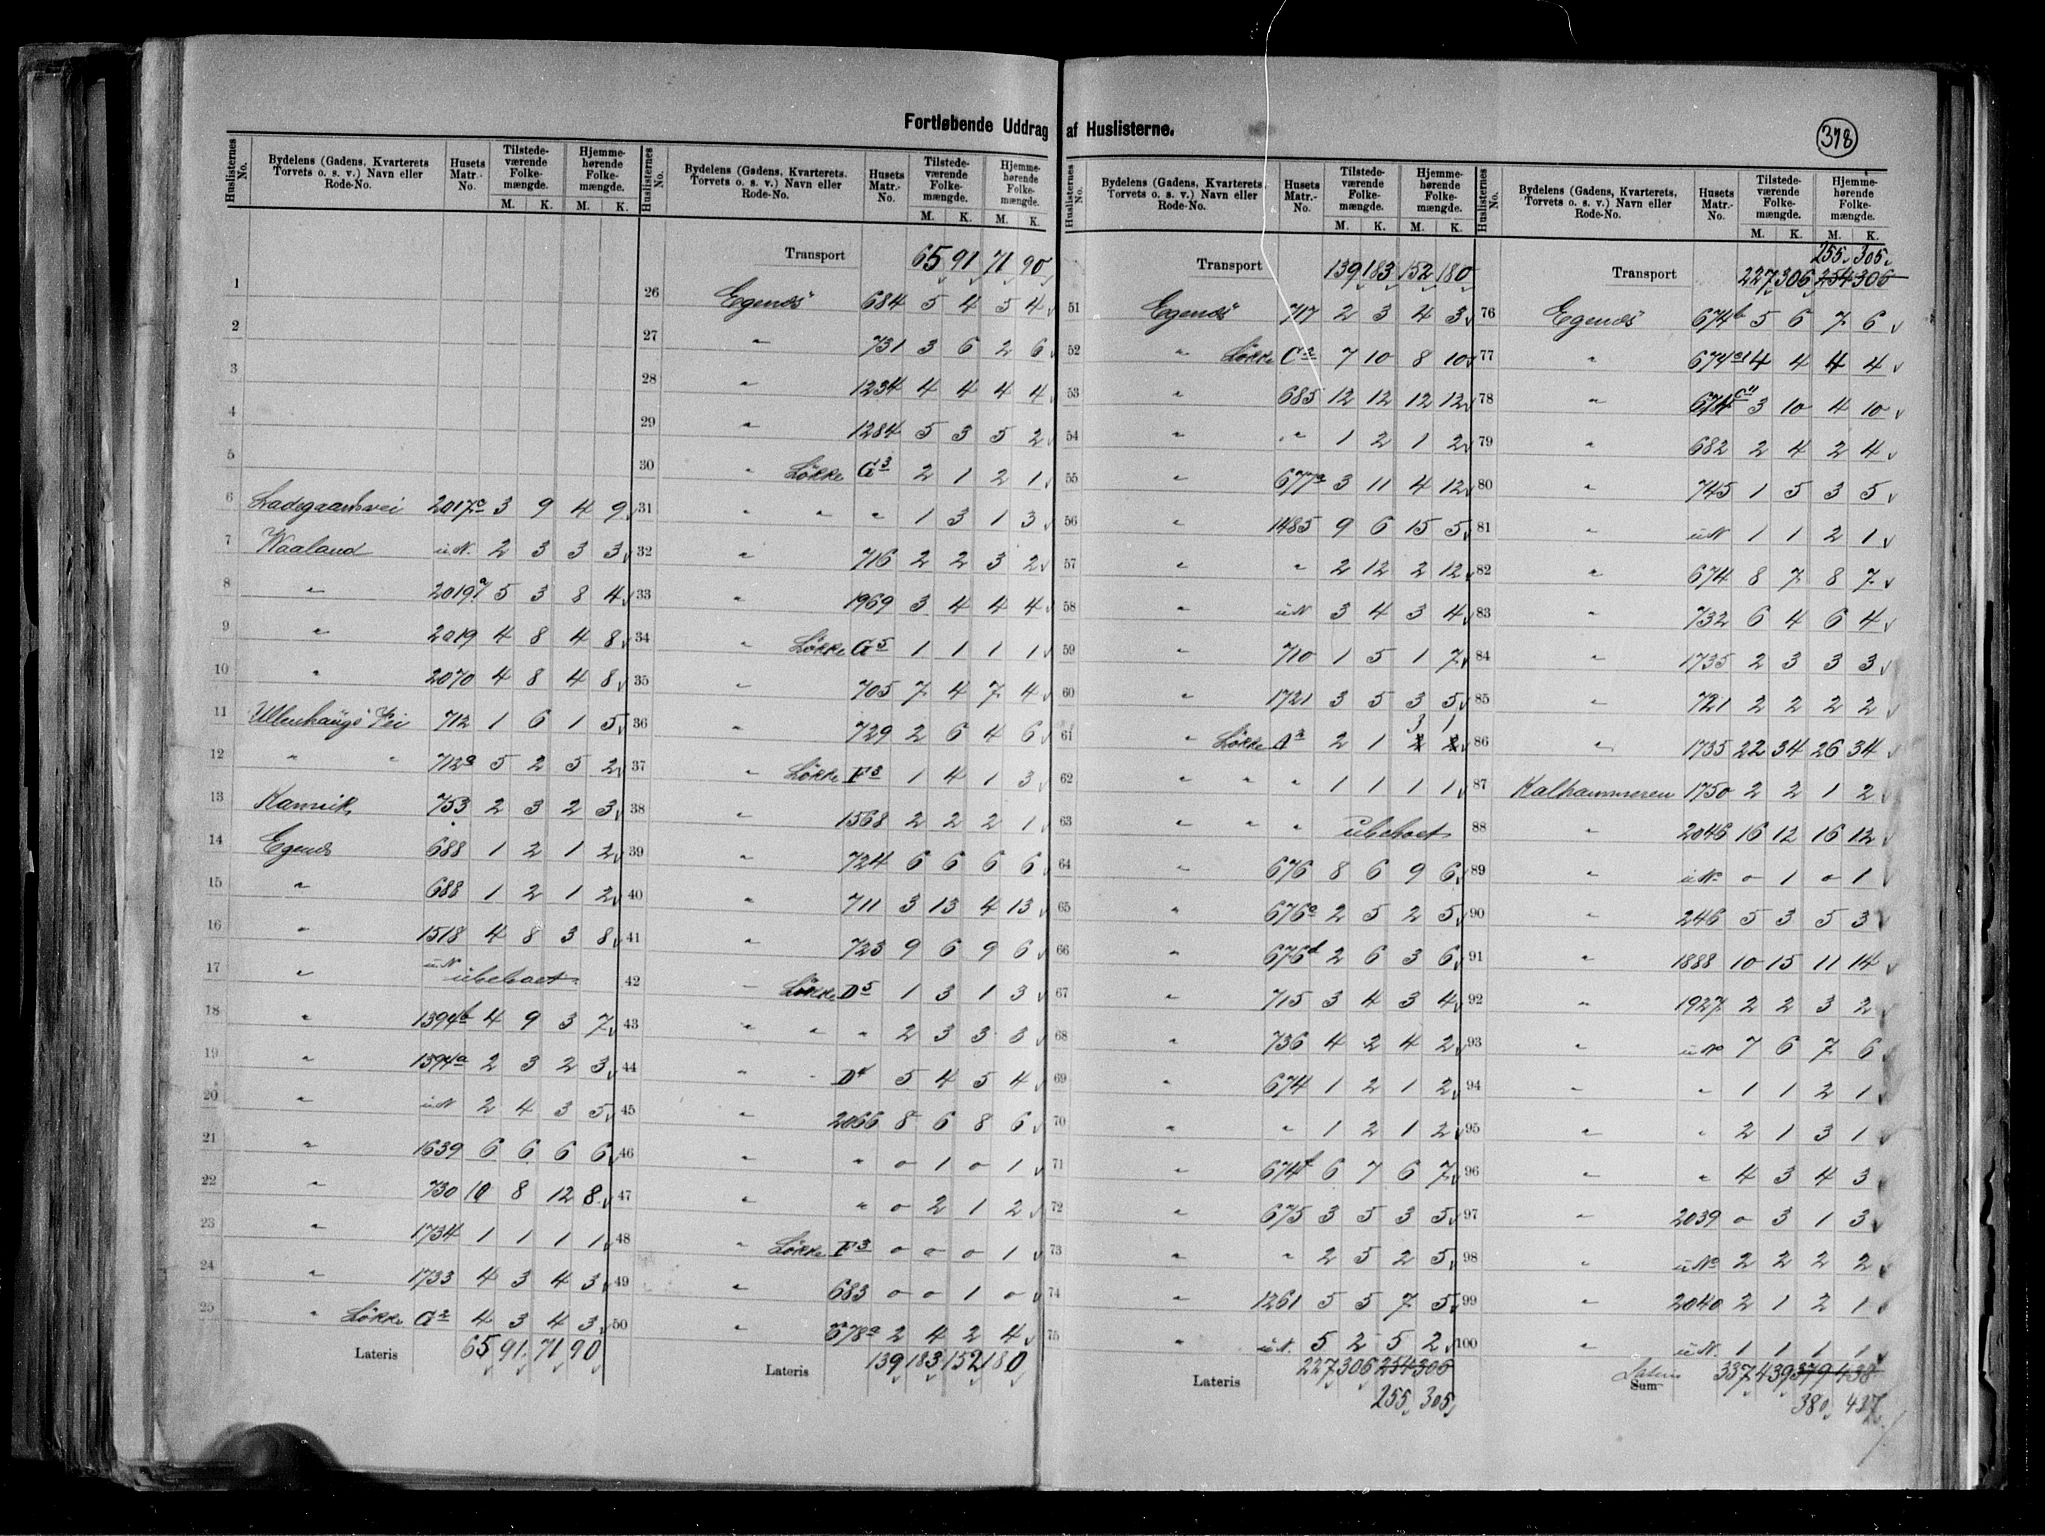 Fortløbende Uddrag af Huslisterne.
378
Huslisternes No. Bydelens (Gadens, Kvarterets Torvets o. s. v.) Navn eller Rode-No. Husets Matr.-No. Tilstedeværende Folkemængde. M. K. Hjemmehørende Folkemængde. M. K.
1
2
3
4
5
6 Ladegaardsvei 2017c 3 9 4 9
7 Waaland u.N. 2 3 3 3
8 " 2019 5 3 8 4
9 " 2019 4 8 4 8
10 " 2070 4 8 4 8
11 Ullenhaugs Vei 712 1 6 1 5
12 " " 712a 5 2 5 2
13 Kannik 753 2 3 2 3
14 Egenæs 688 1 2 1 2
15 " 688 1 2 1 2
16 " 1518 4 8 3 8
17 " u.N. ubeboet
18 " 1394b 4 9 3 7
19 " 1394a 2 3 2 3
20 " u.N. 2 4 3 5
21 " 1639 6 6 6 6
22 " 730 10 8 12 8
23 " 1734 1 1 1 1
24 " 1733 4 3 4 3
25 " Løkke G2 4 3 4 3
Lateris 65 91 71 90
Huslisternes No. Bydelens (Gadens, Kvarterets. Torvets o. s. v.) Navn eller Rode-No. Husets Matr.-No. Tilstedeværende Folkemængde. M. K. Hjemmehørende Folkemængde. M. K.
Transport 65 91 71 90
26 Egenæs 684 5 4 5 4
27 " 731 3 6 2 6
28 " 1234 4 4 4 4
29 " 1284 5 3 5 2
30 " Løkke G3 2 1 2 1
31 " " " 1 3 1 3
32 " 716 2 2 3 2
33 " 1969 3 4 4 4
34 " Løkke G5 1 1 1 1
35 " 705 7 4 7 4
36 " 729 2 6 4 6
37 " Løkke F3 1 4 1 3
38 " 1568 2 2 2 1
39 " 724 6 6 6 6
40 " 711 3 13 4 13
41 " 723 9 6 9 6
42 " Løkke D5 1 3 1 3
43 " " " 2 3 3 3
44 " " D4 5 4 5 4
45 " 2066 8 6 8 6
46 " " 0 1 0 1
47 " " 0 2 1 2
48 " Løkke F3 0 0 0 1
49 " 683 0 0 1 0
50 " 678a 2 4 2 4
Lateris 139 183 152 180
Huslisternes No. Bydelens (Gadens, Kvarterets, Torvets o. s. v.) Navn eller Rode-No. Husets Matr.-No. Tilstedeværende Folkemængde. M. K. Hjemmehørende Folkemængde. M. K.
Transport 139 183 152 180
51 Egenæs 717 2 3 4 3
52 " Løkke C2 7 10 8 10
53 " 685 12 12 12 12
54 " " 1 2 1 2
55 " 677a 3 11 4 12
56 " 1485 9 6 15 5
57 " " 2 12 2 12
58 " u.N. 3 4 3 4
59 " 710 1 5 1 7
60 " 1721 3 5 3 5
61 " Løkke A2 2 1 3 1
62 " " " 1 1 1 1
63 " " " ubeboet
64 " 676 8 6 9 6
65 " 676a 2 5 2 5
66 " 676d 2 6 3 6
67 " 715 3 4 3 4
68 " 736 4 2 4 2
69 " 674 1 2 1 2
70 " " 1 2 1 2
71 " 674f 6 7 6 7
72 " 675 3 5 3 5
73 " " 2 5 2 5
74 " 1261 5 5 7 5
75 " u.N. 5 2 5 2
Lateris 227 306 254 306
255 305
Huslisternes No. Bydelens (Gadens, Kvarterets, Torvets o. s. v.) Navn eller Rode-No. Husets Matr.-No. Tilstedeværende Folkemængde. M. K. Hjemmehørende Folkemængde. M. K.
255 305
Transport 227 306 254 306
76 Egenæs 674b 5 6 7 6
77 " 674 4 4 4 4
78 " 674 3 10 4 10
79 " 682 2 4 2 4
80 " 745 1 5 3 5
81 " u.N. 1 1 2 1
82 " 674 8 7 8 7
83 " 732 6 4 6 4
84 " 1735 2 3 3 3
85 " 721 2 2 2 2
86 " 1735 22 34 26 34
87 Kalhammeren 1750 2 2 1 2
88 " 2046 16 12 16 12
89 " u.No. 0 1 0 1
90 " 246 5 3 5 3
91 " 1888 10 15 11 14
92 " 1927 2 2 3 2
93 " u.No 7 6 7 6
94 " " 1 1 2 1
95 " " 2 1 3 1
96 " " 4 3 4 3
97 " 2039 0 3 1 3
98 " u.No 2 2 2 2
99 " 2040 2 1 2 1
100 " u.N. 1 1 1 1
Lateris Sum 337 439 379 438
380 437